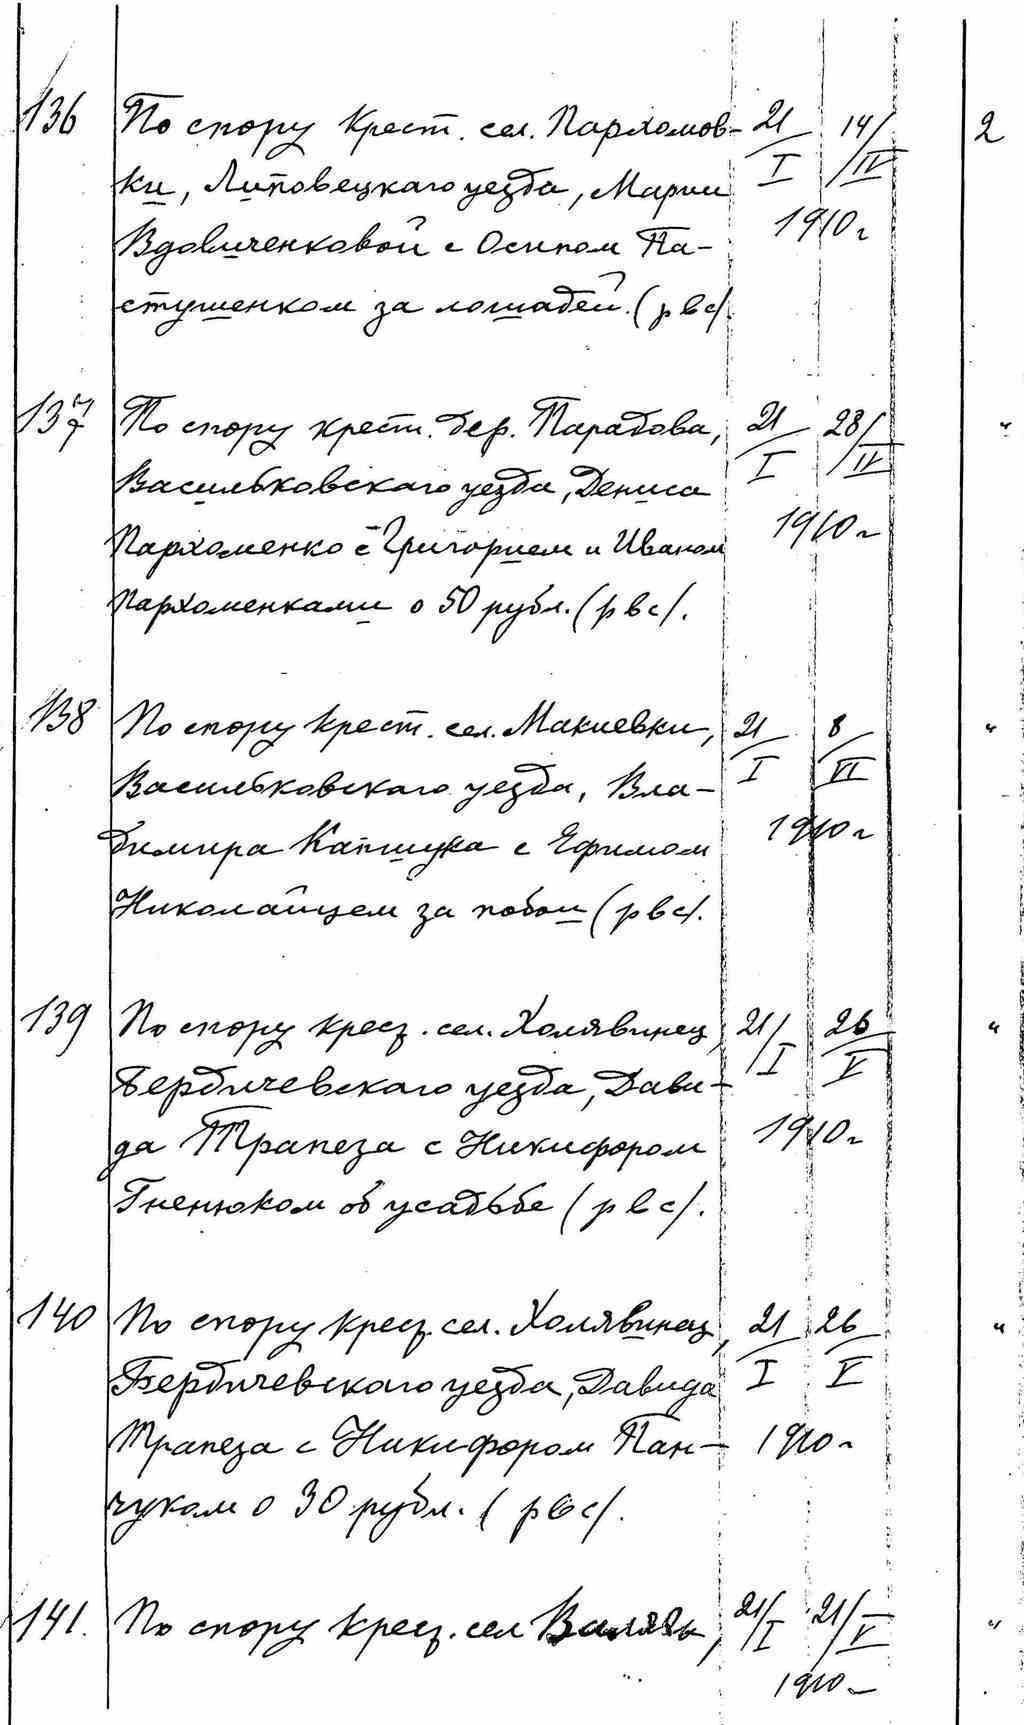 136 По спору Крест. сел. Пархомов- 21/I 14/IV 2
ки, Липовецкаго уезда, Марии
Вдовиченковой с Осипом Па- 1910 г
стушенком за лошадей. (р в с).
137 По спору крест. дер. Парадова, 21/I 28/IV "
Васильковскаго уезда, Дениса
Пархоменко с Григорием и Иваном 1910 г
Пархоменками о 50 рубл. (р в с).
138 По спору крест. сел. Макиевки, 21/I 8/VI "
Васильковскаго уезда, Вла-
димира Капшука с Ефимом 1910 г
Николайцем за побои (р в с).
139 По спору крест. сел. Холявинец, 21/I 26/V "
Бердичевскаго уезда, Дави-
да Трапеза с Никифором 1910 г
Гненюком об усадьбе (р в с).
140 По спору крест. сел. Холявинец, 21/I 26/V "
Бердичевскаго уезда, Давида
Трапеза с Никифором Пан- 1910 г
чуком о 30 рубл. (р в с).
141. По спору крест. сел 21/I 21/V "
1910 г